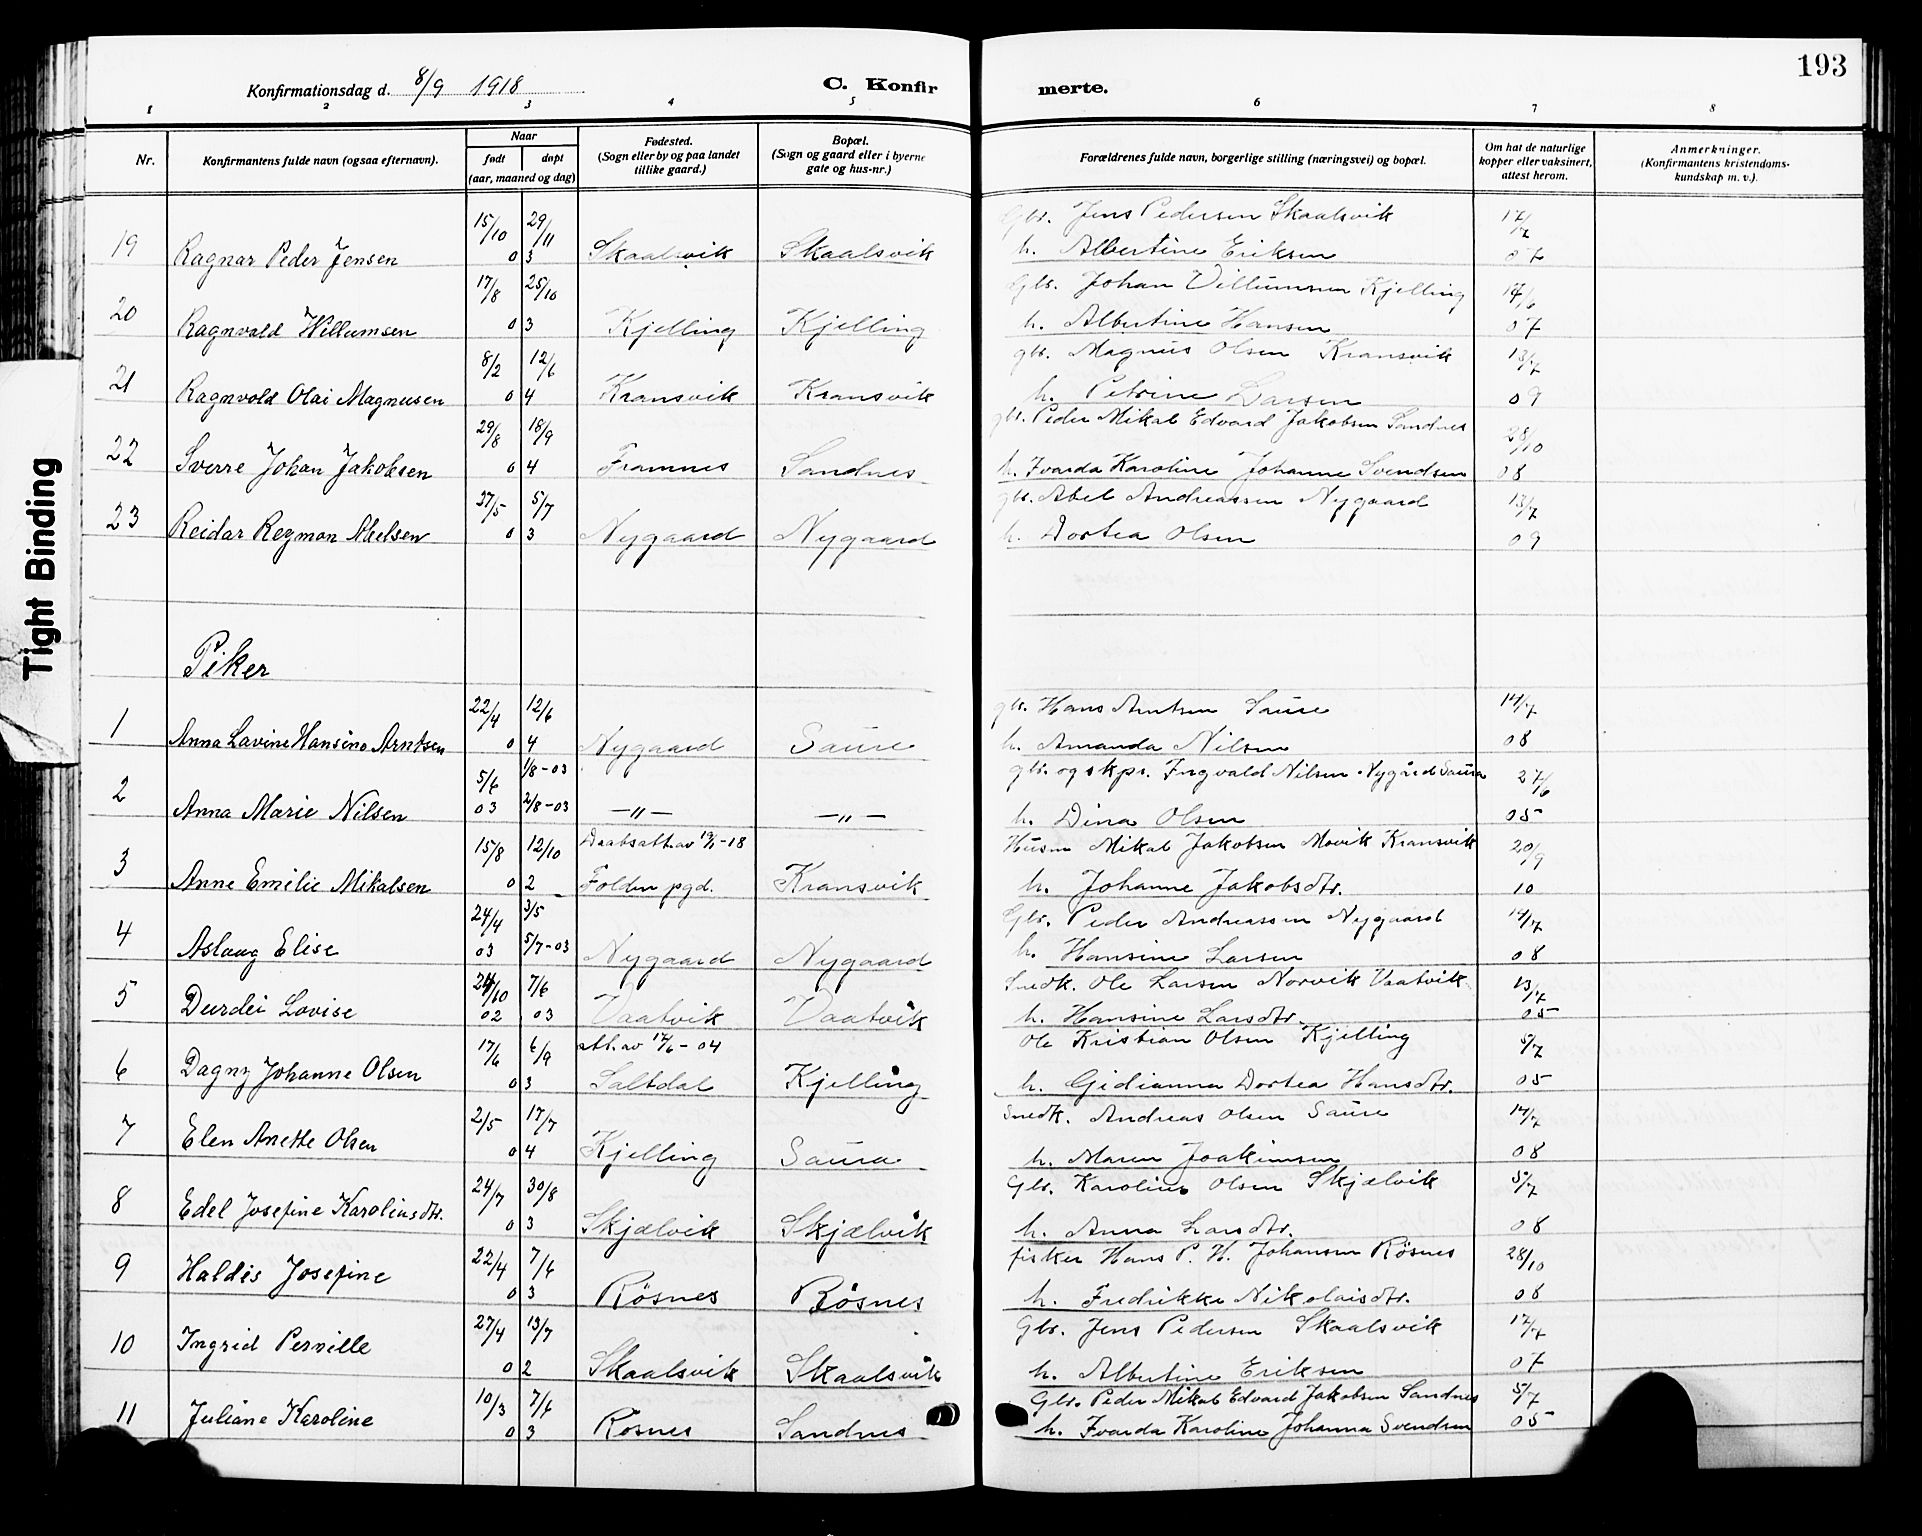 193
Konfirmationsdag d. 8/9 1918
C. Konfirmerte.
1 2 3 4 5 6 7 8
Nr.
Konfirmantens fulde navn (ogsaa efternavn).
Naar
født døpt
(aar, maaned og dag)
Fødested.
(Sogn eller by og paa landet
tillike gaard.)
Bopæl.
(Sogn og gaard eller i byerne
gate og hus-nr.)
Forældrenes fulde navn, borgerlige stilling (næringsvei) og bopæl.
Om hat de naturlige
kopper eller vaksinert,
attest herom.
Anmerkninger.
(Konfirmantens kristendoms-
kundskap m. v.).
15/10 29/11 Gbr. Jens Pedersen Skaalsvik 17/7
19 Ragnar Peder Jensen 03 Skaalsvik Skaalsvik h. Albertine Eriksen 07
17/8 25/10 Gbr. Johan Villumsen Kjelling
20 Ragnvald Willumsen 03 Kjelling Kjelling h. Albertine Hansen 07
8/2 12/6 gbr. Magnus Olsen Kransvik 13/7
21 Ragnvald Olai Magnusen 04 Kransvik Kransvik h. Petrine Larsen 09
29/8 18/9 gbr. Peder Mikal Edvard Jakobsen Sandnes 28/10
22 Sverre Johan Jakobsen 04 Framnes Sandnes h. Ivarda Karoline Johanne Svendsen 08
27/5 5/7 gbr. Abel Andreassen Nygaard 13/7
23 Reidar Regmon Abelsen 03 Nygaard Nygaard h. Dortea Olsen 09
Piker
22/4 12/6 gbr. Hans Arntsen Saure 14/7
1 Anna Lavine Hansine Arntsen 04 Nygaard Saure h. Amanda Nilsen 08
5/6 1/8-03 gbr. og skpr. Ingvald Nilsen Nygård Saura 27/6
2 Anna Marie Nilsen 03 2/8-03 —"— —"— h. Dina Olsen 05
15/8 12/10 Daabsatt. av -18 Husm Mikal Jakobsen Movik Kransvik 20/9
3 Anne Emilie Mikalsen 02 Folden pgd. Kransvik h. Johanne Jakobsdtr. 10
24/4 3/5 Gbr. Peder Andreassen Nygaard 14/7
4 Aslaug Elise 03 5/7-03 Nygaard Nygaard h. Hansine Larsen 08
24/10 7/6 Snedk. Ole Larsen Norvik Vaatvik 13/7
5 Durdei Lovise 02 03 Vaatvik Vaatvik h. Hansine Larsdtr. 05
17/6 6/9 att. av 17/6-04 Ole Kristian Olsen Kjelling 5/7
6 Dagny Johanne Olsen 03 Saltdal Kjelling h. Gidianna Dortea Hansdtr. 05
2/5 17/7 Snedk. Andreas Olsen Saure 14/7
7 Elen Anette Olsen 04 Kjelling Saura h. Maren Joakimsen 08
24/7 30/8 Gbr. Karolius Olsen Skjælvik 5/7
8 Edel Josefine Karoliusdtr. 03 Skjælvik Skjælvik h. Anna Larsdtr. 08
22/4 7/6 fisker Hans P. H. Johansen Røsnes 28/10
9 Haldis Josefine 03 Røsnes Røsnes h. Fredrikke Nikolaisdtr. 08
27/4 13/7 Gbr. Jens Pedersen Skaalsvik 17/7
10 Ingrid Pernille 02 Skaalsvik Skaalsvik h. Albertine Eriksen 07
10/3 7/6 Gbr. Peder Mikal Edvard Jakobsen Sandnes 5/7
11 Juliane Karoline 03 Røsnes Sandnes h. Ivarda Karoline Johanna Svendsen 05
Tight Binding